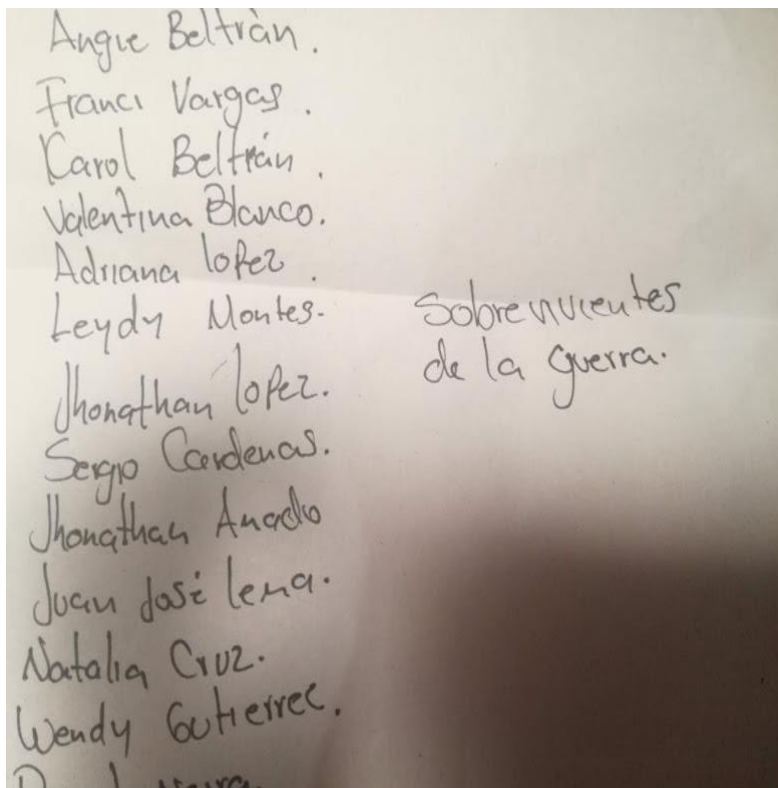 Angie Beltrán.
Franci Vargas.
Karol Beltrán.
Valentina Blanco.
Adriana lopez.
Leydy Montes.
Jhonathan lopez.
Sergio Cardenas.
Jhonathan
Juan José lema.
Natalia Cruz.
Wendy Gutierrec.
Sobrevivientes
de la guerra.